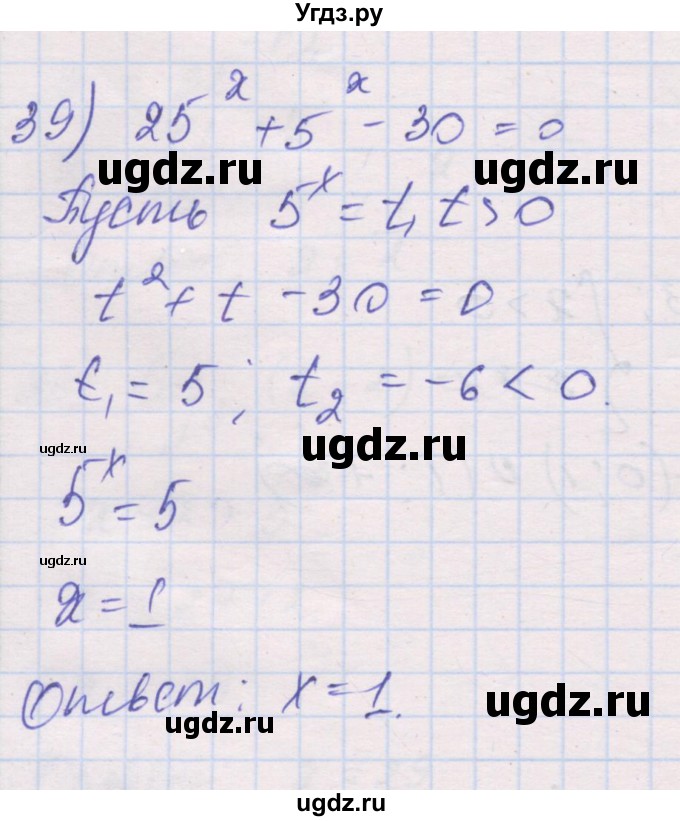 Угдз.ру
39) 25^x + 5^x - 30 = 0
ugdz.ru ugdz.ru
Пусть 5^x = t, t > 0
t^2 + t - 30 = 0
t₁ = 5; t₂ = -6 < 0.
ugdz.ru ugdz.ru
5^x = 5
ugdz.ru
x = 1
Ответ: x = 1.
ugdz.ru ugdz.ru
ugdz.ru